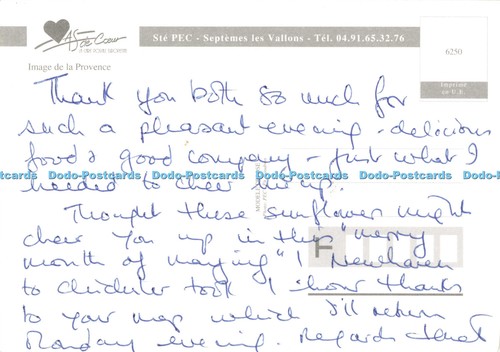 As de Cœur
Sté PEC - Septèmes les Vallons - Tél. 04.91.65.32.76
6250
Imprimé en U.E.
Image de la Provence
Thank you both so much for
such a pleasant evening - delicious
food & good company - just what I
needed to cheer me up.
Dodo-Postcards Dodo-Postcards Dodo-Postcards Dodo-Postcards Dodo-Postcards
Thought these sunflowers might
cheer you up in this "merry
month of maying"! Newhaven
to Chichester took 1 hour thanks
to your map which I'll return
Monday evening. Regards Janet
F